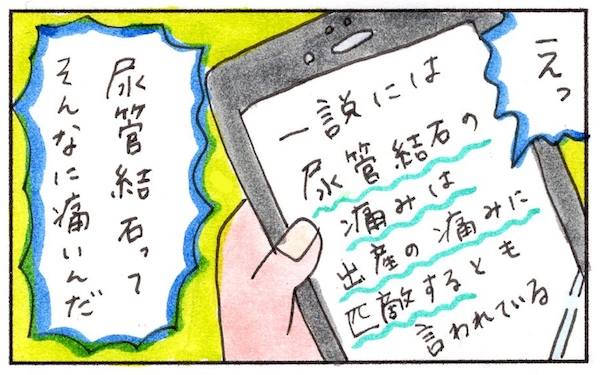 えっ
一説には
尿管結石の
痛みは
出産の痛みに
匹敵するとも
言われている
尿管結石って
そんなに痛いんだ